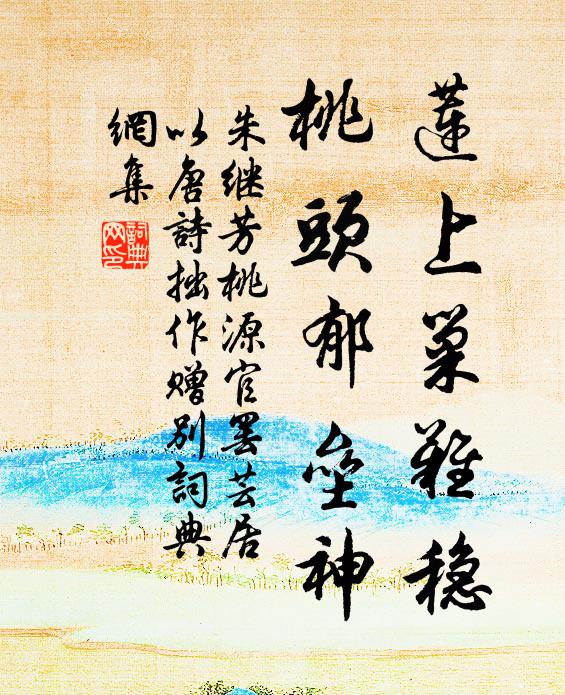 蓮上巢難穏
桃頭郁壘神
朱继芳桃源官罢芸居
以唐詩拙作赠别詞典
網集
詞典
网印